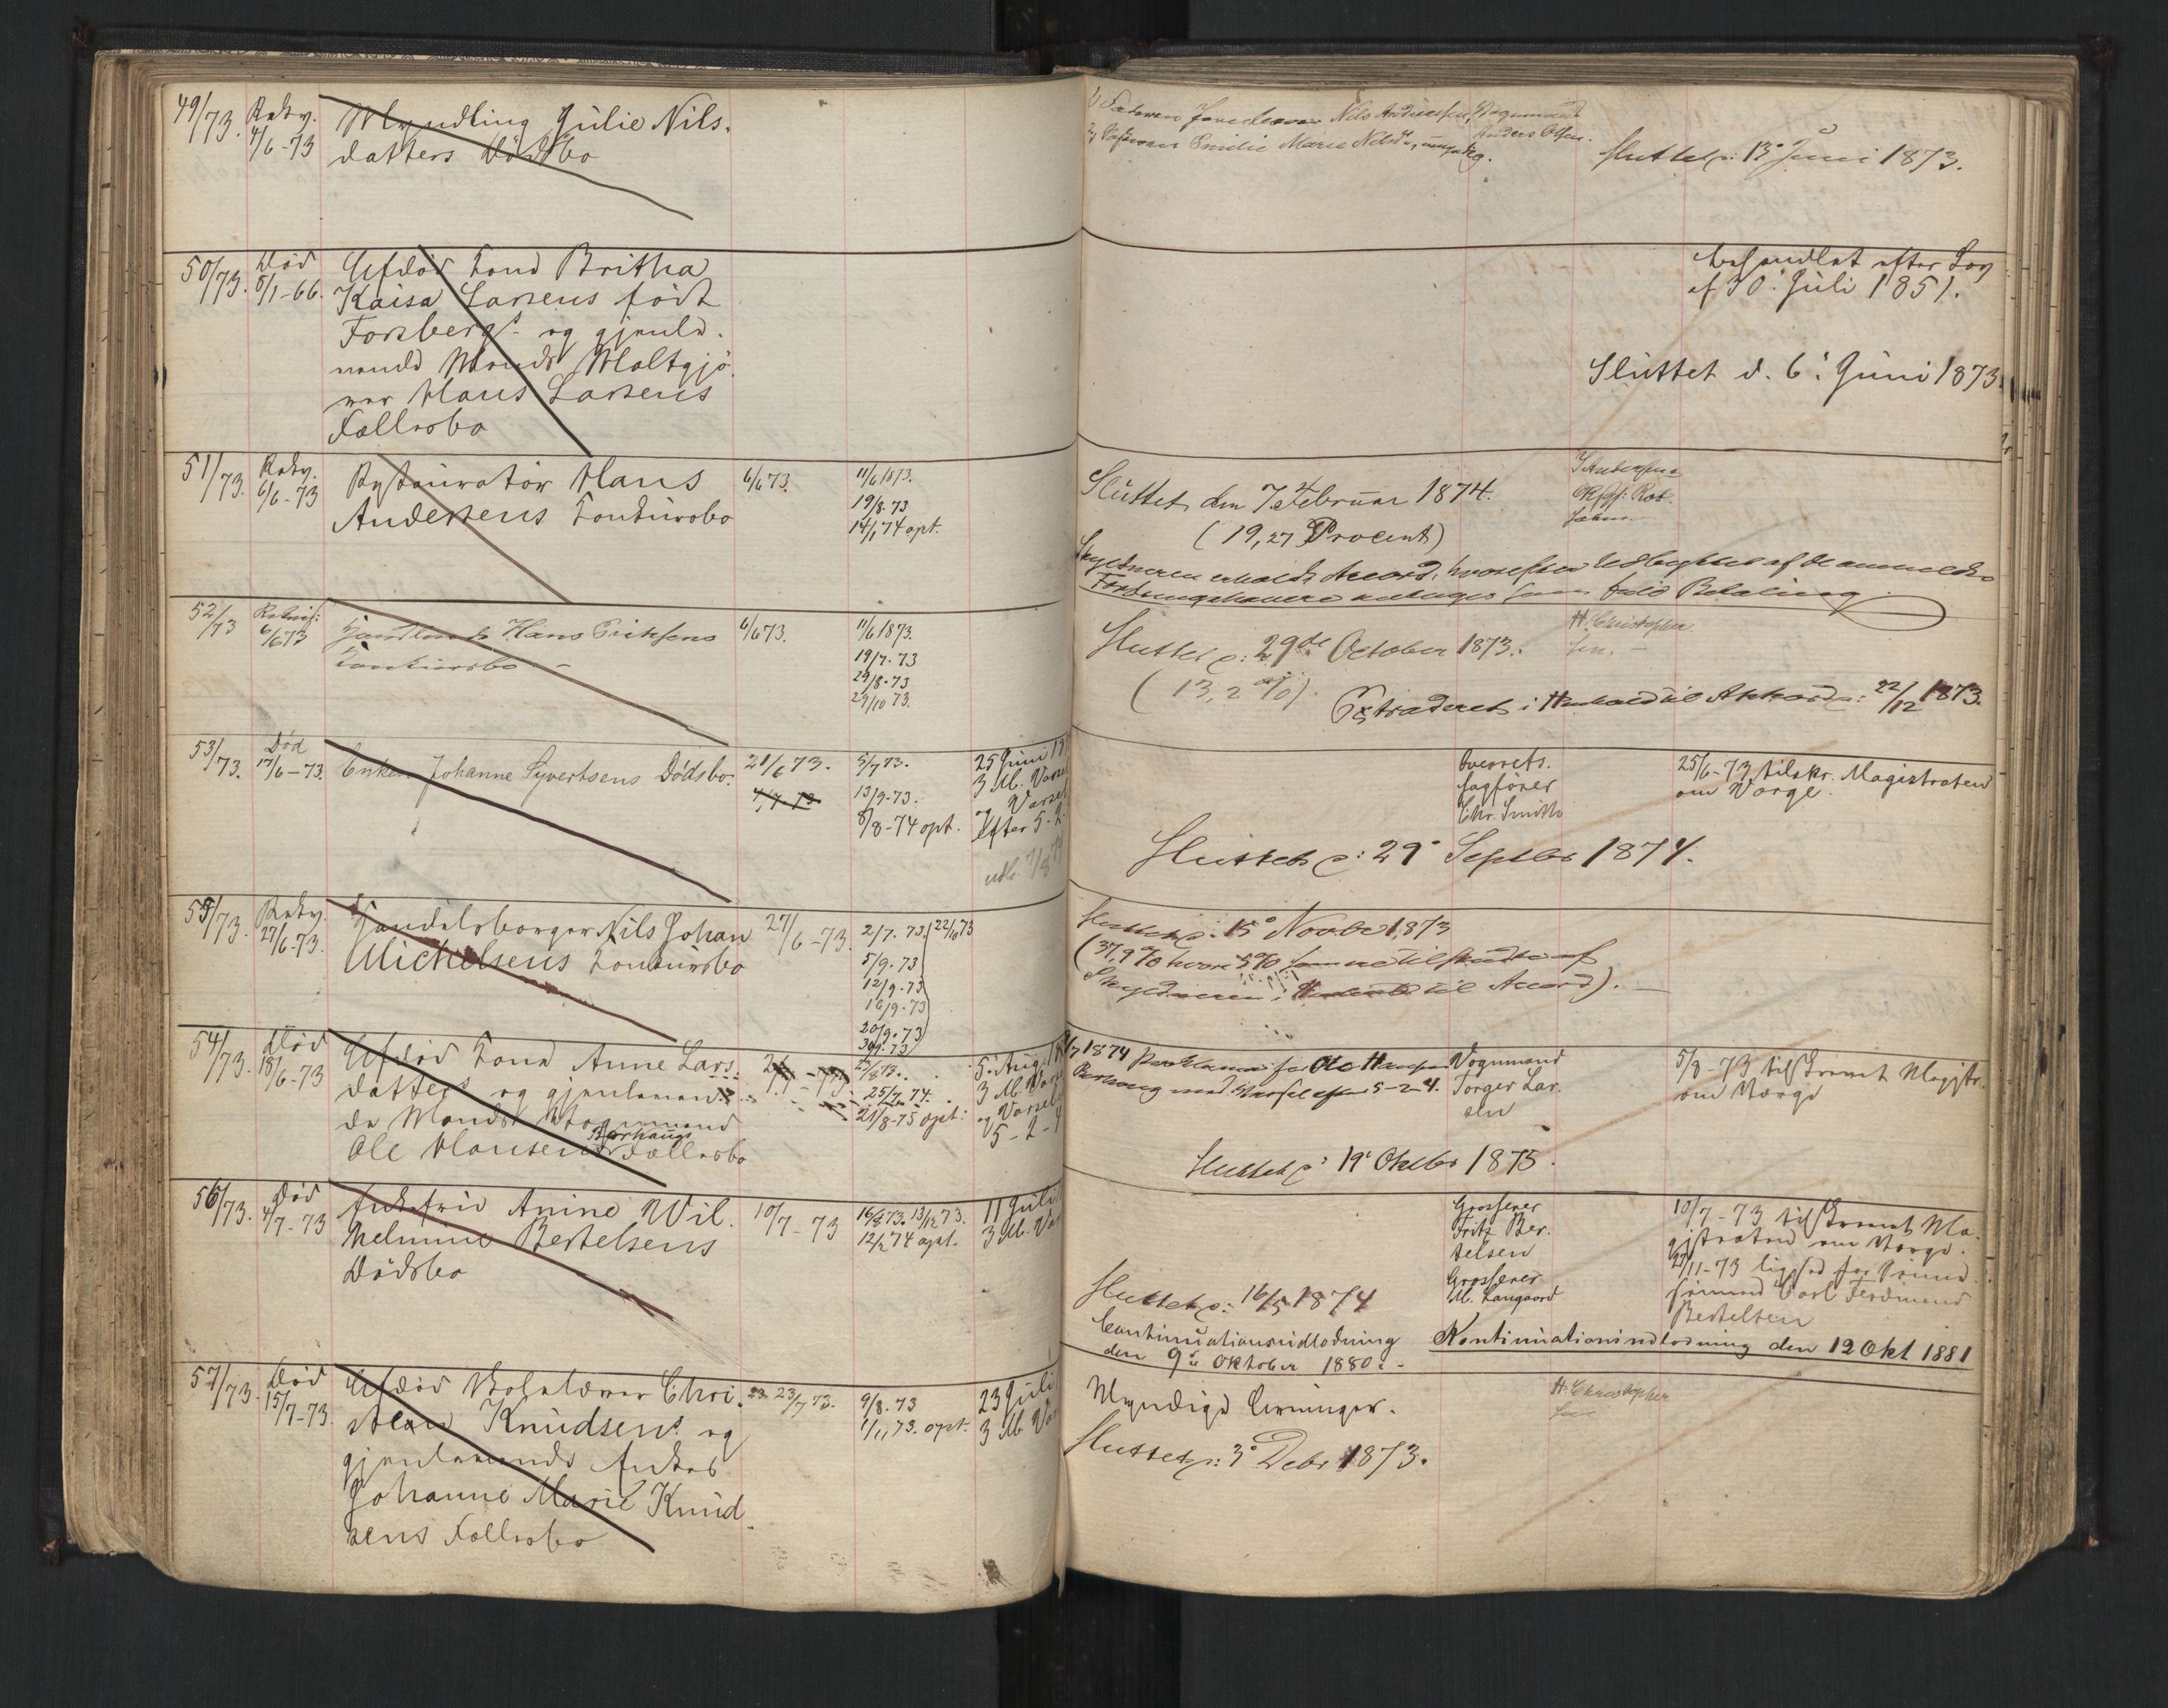 49/73. Rekv. Myndling Julie Nils-
4/6-73 datters Dødsbo
Nils Andersen, Vognmand
Anders Olsen.
Emilie Marie Nilsdr, umyndig.
Sluttet d: 13° Juni 1873.
50/73. Død Afdød Kone Britha
8/1-66. Kaisa Larsens født
Forsbergs og gjenlev-
ende Mands Maltgjø-
rer Hans Larsens
Fællesbo
behandlet efter Lov
af 30' Juli 1851.
Sluttet d. 6' Juni 1873.
51/73. Rekv. Restauratør Hans 6/6 73. 11/6 1873.
6/6-73 Andersens Konkursbo 19/8. 73
14/1 74 opt.
Sluttet den 7de Februar 1874.
(19,27 Procent)
Skyldneren erholdt Accord, hvorefter Udbyttet af de anmeldte
Fordringshavere antages som fuld Betaling
52/73 Hans Eriksens 6/6 73. 11/6 1873.
6/6 73 Konkursbo 19/7. 73
29/8. 73
29/10 73.
H. Christopher
sen.
Sluttet d: 29de October 1873.
(13,2 %).
Extraderet i Henhold til Akkord d: 22/12 1873.
53/73. Død Enken Johanne Syvertsens Dødsbo. 21/6 73. 5/7 73. 25 Juni
17/6-73. 13/9-73. 3 M. Varsel
8/8-74 opt. og Varsel
efter 5-2-
Overrets-
sagfører
Chr. Smith
25/6-73 tilskr. Magistraten
om Værge.
Sluttet d: 29' Septbr 1874.
55/73. Rekv. Handelsborger Nils Johan 27/6-73. 2/7. 73. 22/10 73
27/6-73. Michelsens Konkursbo 5/9. 73
12/9. 73
16/9. 73
20/9. 73
30/9. 73
Sluttet d: 15° Novbr 1873
(37,9 % hvoraf 5% tilskudte af
Skyldneren i Henhold til Accord).
54/73. Død Afdød Kone Anne Lars-
18/6-73 datters og gjenleven-
de Mands Vognmand
Berhaugs
Ole Hansens Fællesbo
25/7. 74.
21/8-75 opt.
5' Aug.
3 M. Varsel
og Varsel
5-2-4
1874 Proklama for Ole Hansen
Berhaug med Varsel efter 5-2-4.
Vognmand
Torger Lar-
sen
5/8-73 tilskrevet Magistr.
om Værge
Sluttet d' 19' Oktbr 1875.
56/73. Død Enkefru Anine Wil- 10/7-73 16/8 73. 13/12 73. 11 Juli
4/7-73 helmine Bertelsens 12/2 74 opt. 3 M. Var
Dødsbo
Grosserer
Fritz Ber-
telsen
Grosserer
M. Langaard
10/7-73 tilskrevet Ma-
gistraten om Værge.
27/11-73 ligesaa for Sømand
Carl Ferdinand
Bertelsen
Sluttet d: 16/5 1874
Continuationsudlodning
den 9de Oktober 1880.-
Kontinuationsudlodning den 12 Okt 1881
57/73. Død Afdød Skolelærer Chri- 23/7 73. 9/8. 73 23 Juli
15/7-73. stian Knudsens og 1/11 73. opt. 3 M. Var
gjenlevende Enkes
Johanne Marie Knud-
sens Fællesbo
Myndige Arvinger.
H. Christopher
sen
Sluttet d: 3° Debr 1873.